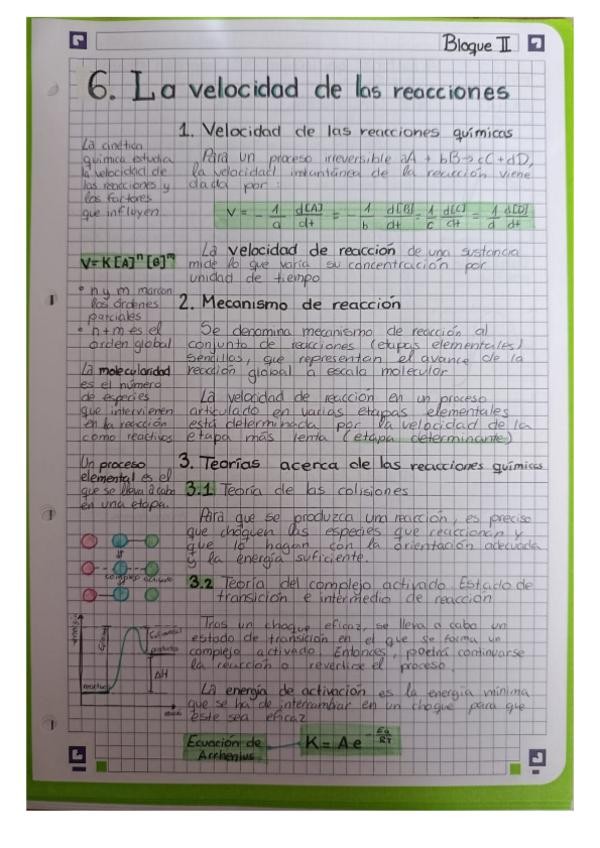 Bloque II
6. La velocidad de las reacciones
1. Velocidad de las reacciones químicas
La cinética
química estudia
la velocidad de
las reacciones y
los factores
que influyen.
Para un proceso irreversible aA + bB → cC + dD,
la velocidad instantánea de la reacción viene
dada por:
V = - 1/a d[A]/dt = - 1/b d[B]/dt = 1/c d[C]/dt = 1/d d[D]/dt
La velocidad de reacción de una sustancia
mide lo que varía su concentración por
unidad de tiempo
V = K [A]ⁿ [B]ᵐ
• n y m marcan
los órdenes
parciales
• n + m es el
orden global
2. Mecanismo de reacción
Se denomina mecanismo de reacción al
conjunto de reacciones (etapas elementales)
sencillas, que representan el avance de la
reacción global a escala molecular
La molecularidad
es el número
de especies
que intervienen
en la reacción
como reactivos
La velocidad de reacción en un proceso
articulado en varias etapas elementales
está determinada por la velocidad de la
etapa más lenta (etapa determinante)
3. Teorías acerca de las reacciones químicas
Un proceso
elemental es el
que se lleva a cabo
en una etapa.
3.1 Teoría de las colisiones
Para que se produzca una reacción, es preciso
que choquen las especies que reaccionan y
que lo hagan con la orientación adecuada
y la energía suficiente.
complejo activado
3.2 Teoría del complejo activado. Estado de
transición e intermedio de reacción
Tras un choque eficaz, se lleva a cabo un
estado de transición en el que se forma un
complejo activado. Entonces, podrá continuarse
la reacción o revertirse el proceso.
ΔH
La energía de activación es la energía mínima
que se ha de intercambiar en un choque para que
éste sea eficaz
Ecuación de
Arrhenius
K = A e^-Ea/RT